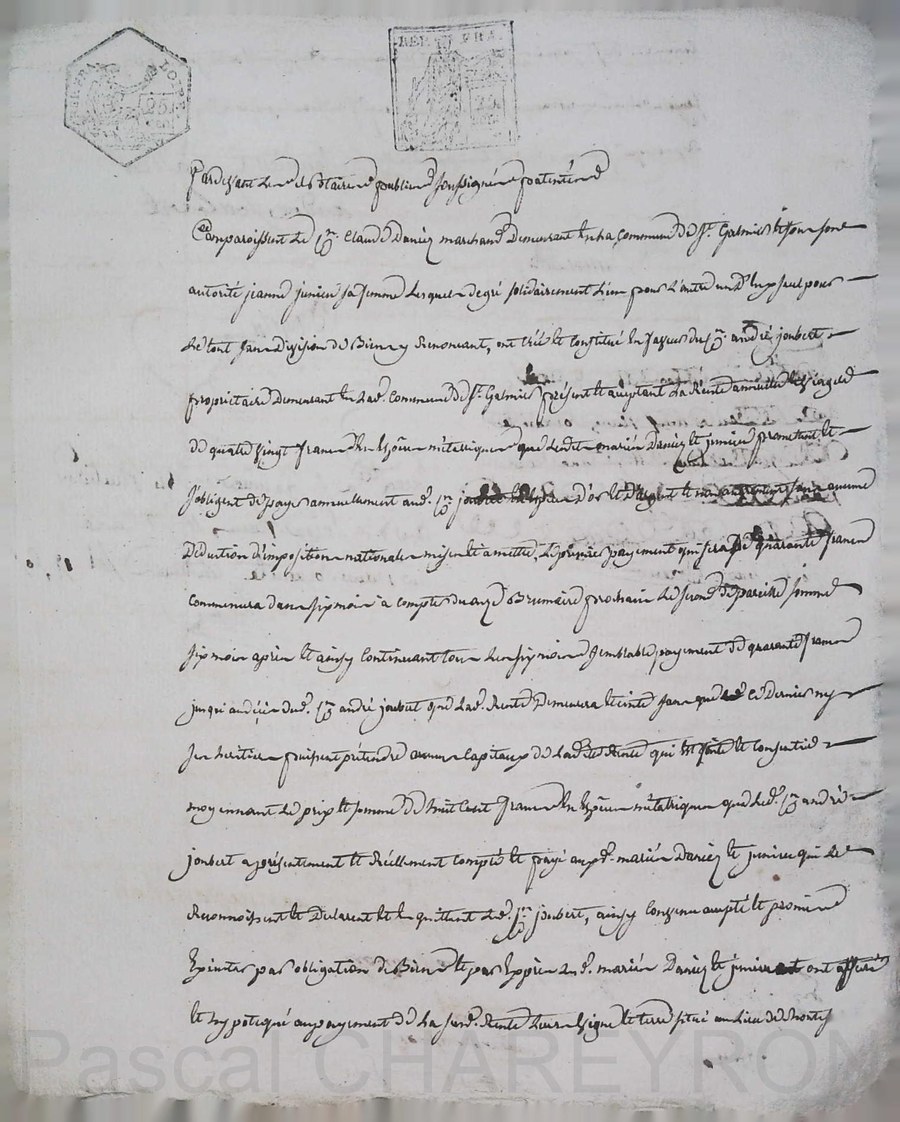 REP. FRA
25
CEN
REP. FRA
25
Pardevant Les Notaires publics soussignés patentés
Comparoissent Le Sr. Claude Daniez marchand Demeurant En La Commune de St. Galmier et sous son
autorité jeanne junieu sa femme Lesquels de gré solidairement L'un pour L'autre un d'Eux seul pour
Le tout sans Division de Biens y Renoncant, ont créé et constitué En faveur du Sr. andré joubert
proprietaire Demeurant En Lad. Commune de St. Galmier présent et acceptant La Rente annuelle et viagere
de quatre vingt francs En Espèces métaliques que Lesdits mariés Daniez et junieu promettent et
s'obligent de payer annuellement aud. Sr. joubert En Espèces d'or et d'argent et non autrement sans aucune
Déduction d'impositions nationales mises et a mettre, Le premier payement qui sera de quarante francs
Commencera dans six mois a compter du Brumaire prochain Le second de pareille somme
six mois après et ainsy Continuant tous Les six mois Semblable payement de quarante francs
jusqu'au décès dud. Sr. andré joubert que Lad. Rente Demeurera Eteinte sans que ce Dernier ny
ses heritiers puissent prétendre aucuns Capitaux de Lad. Rente qui Est faite et Consentie
moyennant Le prix et somme de huit Cent francs En Espèces métaliques que Led. Sr. andré
joubert a présentement et Réellement Compté et payé auxd. mariés Daniez et junieu qui Le
Reconnoissent et Declarent et En quittent Led. Sr. joubert, ainsy Convenu accepté et promis
par obligation de Biens et par Exprès Lesd. mariés Daniez et junieu ont affecté
et hypotequé au payement de La susd. Rente Leurs vigne et terre situé au Lieu de
Pascal CHAREYRON